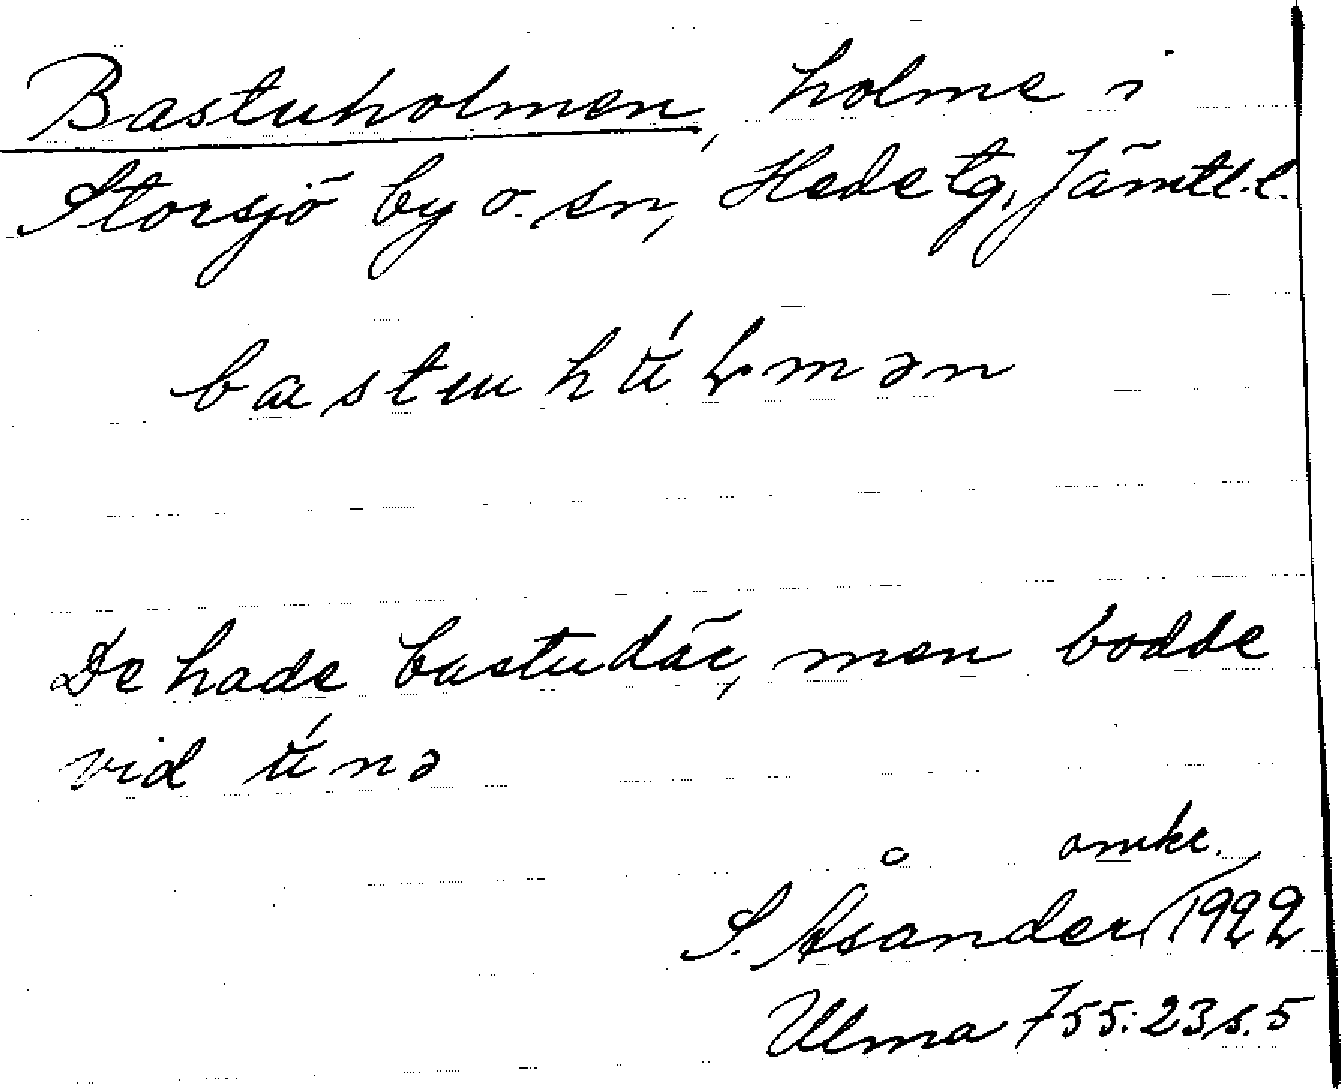 Bastuholmen, holme i
Storsjö by o. sn, Hede tg, Jämtl.l.
bastuhú̄ɽmən
De hade bastu där, men bodde
vid ú̄nə
omkr.
S. Åsander 1922
Ulma 755:23 s.5